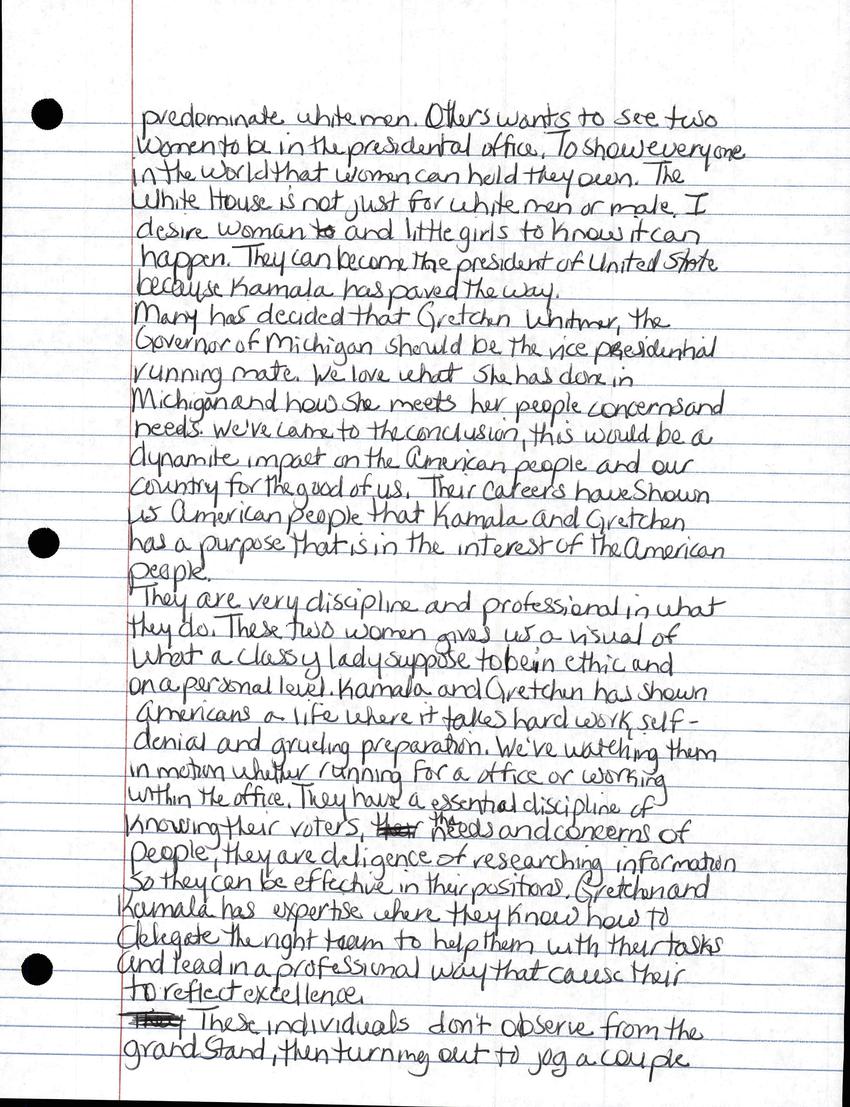 predominate white men. Others wants to see two
women to be in the presidental office. To show everyone
in the world that women can hold they own. The
White House is not just for white men or male. I
desire woman to and little girls to know it can
happen. They can become the president of United State
because Kamala has paved the way.
Many has decided that Gretchen Whitmer, the
Governor of Michigan should be the vice presidential
running mate. We love what she has done in
Michigan and how she meets her people concerns and
needs. We've came to the conclusion, this would be a
dynamite impact on the American people and our
country for the good of us. Their careers have shown
us American people that Kamala and Gretchen
has a purpose that is in the interest of the American
people.
They are very discipline and professional in what
they do. These two women gives us a visual of
what a classy lady suppose to be in ethic and
on a personal level. Kamala and Gretchen has shown
Americans a life where it takes hard work, self-
denial and grueling preparation. We've watching them
in motion whether running for a office or working
within the office. They have a essential discipline of
knowing their voters, their the needs and concerns of
people, they are deligence of researching information
so they can be effective in their positions. Gretchen and
Kamala has expertise where they know how to
delegate the right team to help them with their tasks
and lead in a professional way that cause their
to reflect excellence.
They These individuals don't observe from the
grand Stand, then turning out to jog a couple